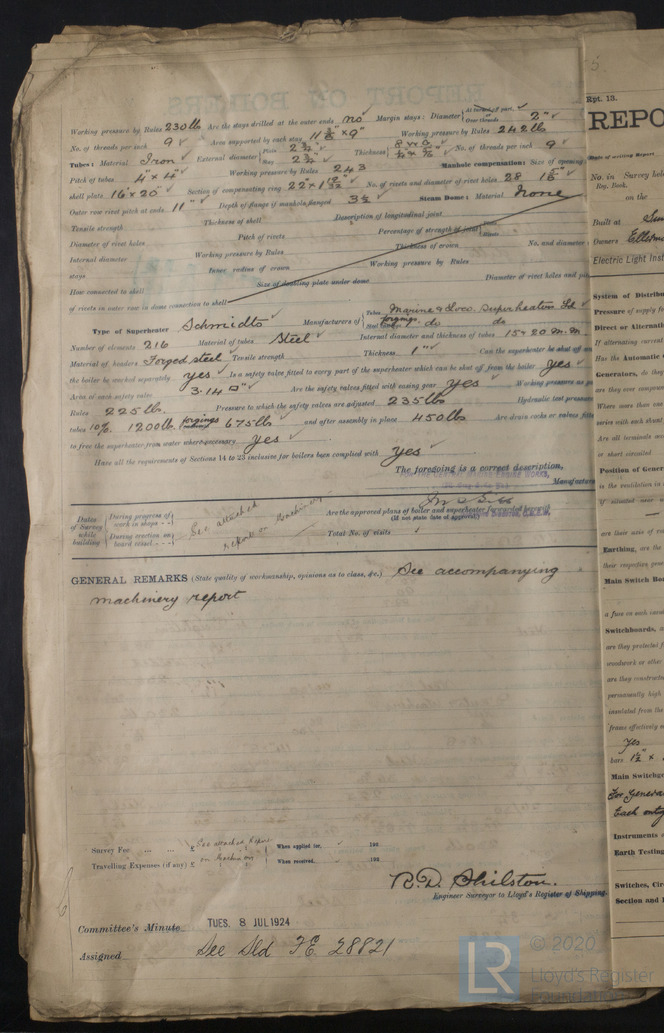 Working pressure by Rules 230 lb Are the stays drilled at the outer ends no Margin stays: Diameter { At turned off part, Over threads 2"
No. of threads per inch 9 Area supported by each stay 11 3/8" × 9" Working pressure by Rules 242 lb
Tubes: Material Iron External diameter { Plain 2 3/4" Stay 2 3/4" Thickness No. of threads per inch 9
Pitch of tubes 4" × 4" Working pressure by Rules 243 Manhole compensation: Size of opening
shell plate 16" × 20" Section of compensating ring No. of rivets and diameter of rivet holes 28
Outer row rivet pitch at ends 11" Depth of flange if manhole flanged 3 1/2 Steam Dome: Material none
Tensile strength Thickness of shell Description of longitudinal joint
Diameter of rivet holes Pitch of rivets Percentage of strength of joint { Plate Rivets
Internal diameter Working pressure by Rules Thickness of crown No. and diameter
stays Inner radius of crown Working pressure by Rules
How connected to shell Size of doubling plate under dome Diameter of rivet holes and
of rivets in outer row in dome connection to shell
Type of Superheater Schmidts Manufacturers of { Tubes Marine & Loco. Superheaters Ld forgings do do
Number of elements 216 Material of tubes Steel Internal diameter and thickness of tubes 15 & 20 m.m.
Material of headers Forged steel Tensile strength Thickness 1" Can the superheater be shut off
the boiler be worked separately yes Is a safety valve fitted to every part of the superheater which can be shut off from the boiler yes
Area of each safety valve 3.14 □" Are the safety valves fitted with easing gear yes Working pressure as
Rules 225 lb. Pressure to which the safety valves are adjusted 235 lb Hydraulic test pressure
tubes 1200 lb. forgings 675 lb and after assembly in place 450 lb Are drain cocks or valves
to free the superheater from water where necessary yes
Have all the requirements of Sections 14 to 22 inclusive for boilers been complied with yes
The foregoing is a correct description,
Manufacturer
Dates of Survey while building { During progress of work in shops - - During erection on board vessel - - - See attached report on Machinery
Are the approved plans of boiler and superheater forwarded herewith
(If not state date of approval)
Total No. of visits
GENERAL REMARKS (State quality of workmanship, opinions as to class, &c.) See accompanying
machinery report
Survey Fee ... ... £ See attached Report When applied for, 192
Travelling Expenses (if any) £ on Machinery When received, 192
R.D. Shilston.
Engineer Surveyor to Lloyd's Register of Shipping.
Committee's Minute TUES. 8 JUL 1924
Assigned See Sld FE 28821
Rpt. 13.
REPO
No. in Survey held
Reg. Book.
on the
Built at
Owners
Electric Light Inst
System of Distribu
Pressure of supply
Direct or Alternati
If alternating current
Has the Automatic
Generators, do they
are they over compoun
Where more than one
series with each shunt
Are all terminals
or short circuited
Position of Gener
is the ventilation in
if situated near
are their axes of
Earthing, are the
their respective
Main Switch Boa
a fuse on each
Switchboards,
are they protected
woodwork or other
are they constructed
permanently high
insulated from the
frame effectively
Yes
bars 1 1/2" ×
Main Switchge
For Genera
Each
Instruments
Earth Testing
Switches, Circ
Section and
LR © 2020
Lloyd's Register
Foundation